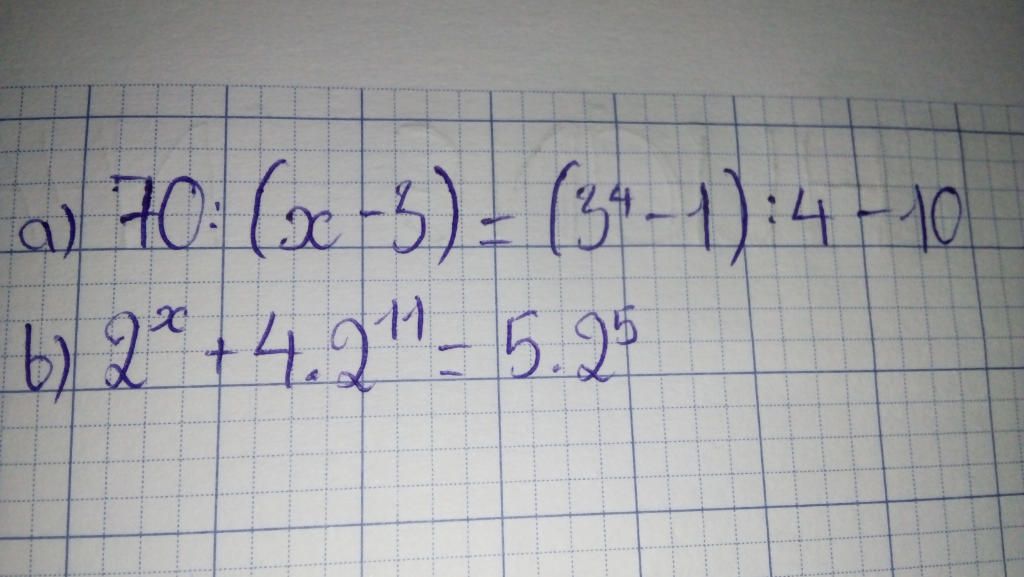 a) 70 : (x - 3) = (3⁴ - 1) : 4 - 10
b) 2ˣ + 4 . 2¹¹ = 5 . 2⁵